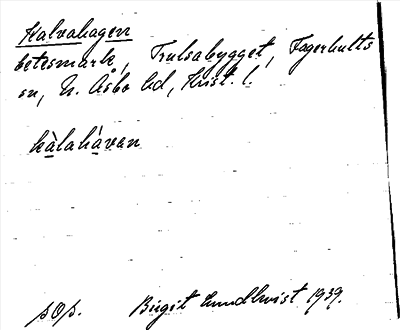 Kalvahagen
betesmark, Trulsabygget, Fagerhults
sn, N. Åsbo hd, Krist. l.
kàlahávan
sOp. Birgit Lundkvist 1939.